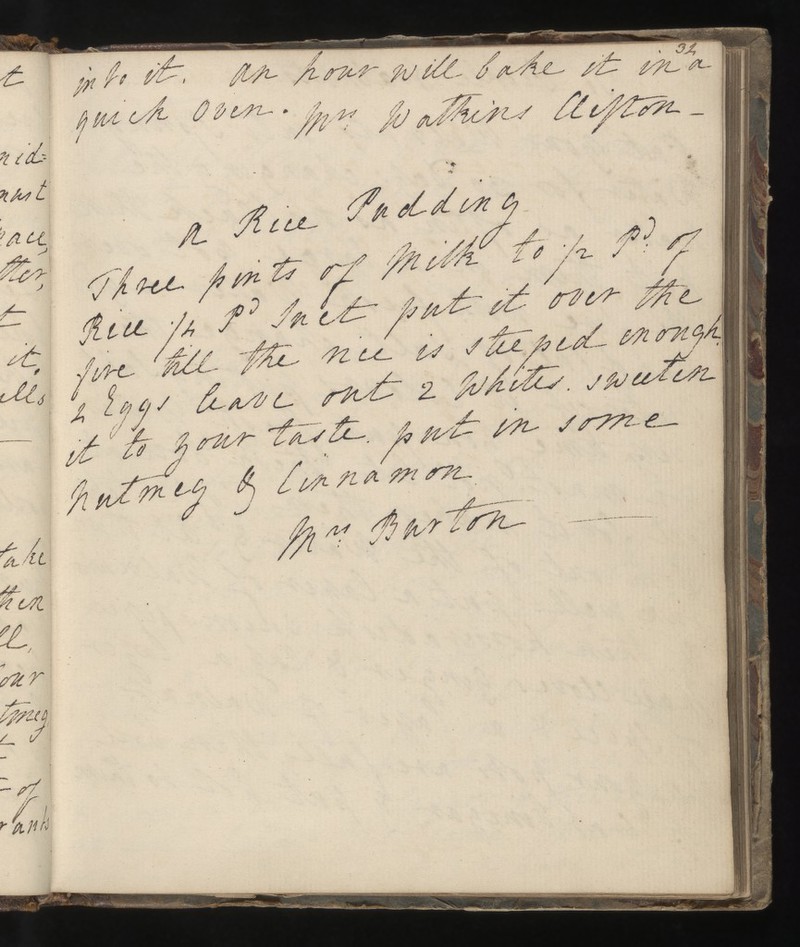 t
nid=
must
pace,
tter,
t
it.
ells
take
then
ll,
our
tmeg
t
t of
rants
32
into it. an hour will bake it in a
quick Oven. Mrs Watkins Clifton -
a Rice Pudding
Three pints of Milk to 1/2 Pd. of
Rice 1/4 Pd Suet put it over the
fire till the rice is steeped enough.
Eggs leave out 2 Whites. sweeten
it to your taste. put in some
Nutmeg & Cinnamon
Mrs. Burton